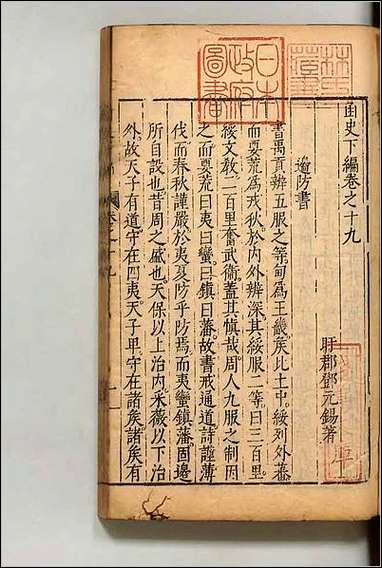 函史下編卷之十九
盱郡鄧元錫著
邊防書
書禹貢辨五服之等甸為王畿矦比土中綏列外蕃
而要荒為戎秋於内外辨深其綏服二等曰三百里
綏文教二百里奮武衛蓋其慎哉周人九服之制因
之而要荒曰夷曰蠻曰鎮曰藩故書戒通道詩謹薄
伐而春秋謹嚴於夷夏防乎防焉而夷蠻鎮藩固邊
所自設也昔周之盛也天保以上治内采薇以下治
外故天子有道守在四夷天子卑守在諸矦諸矦有
日本
政府
圖書